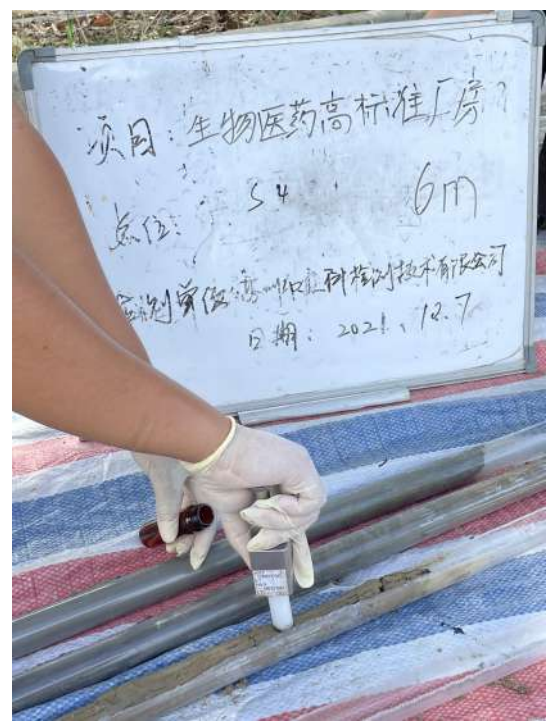 项目：生物医药高标准厂房
点位： S4 6m
检测单位 科检测技术有限公司
日期：2021.12.7